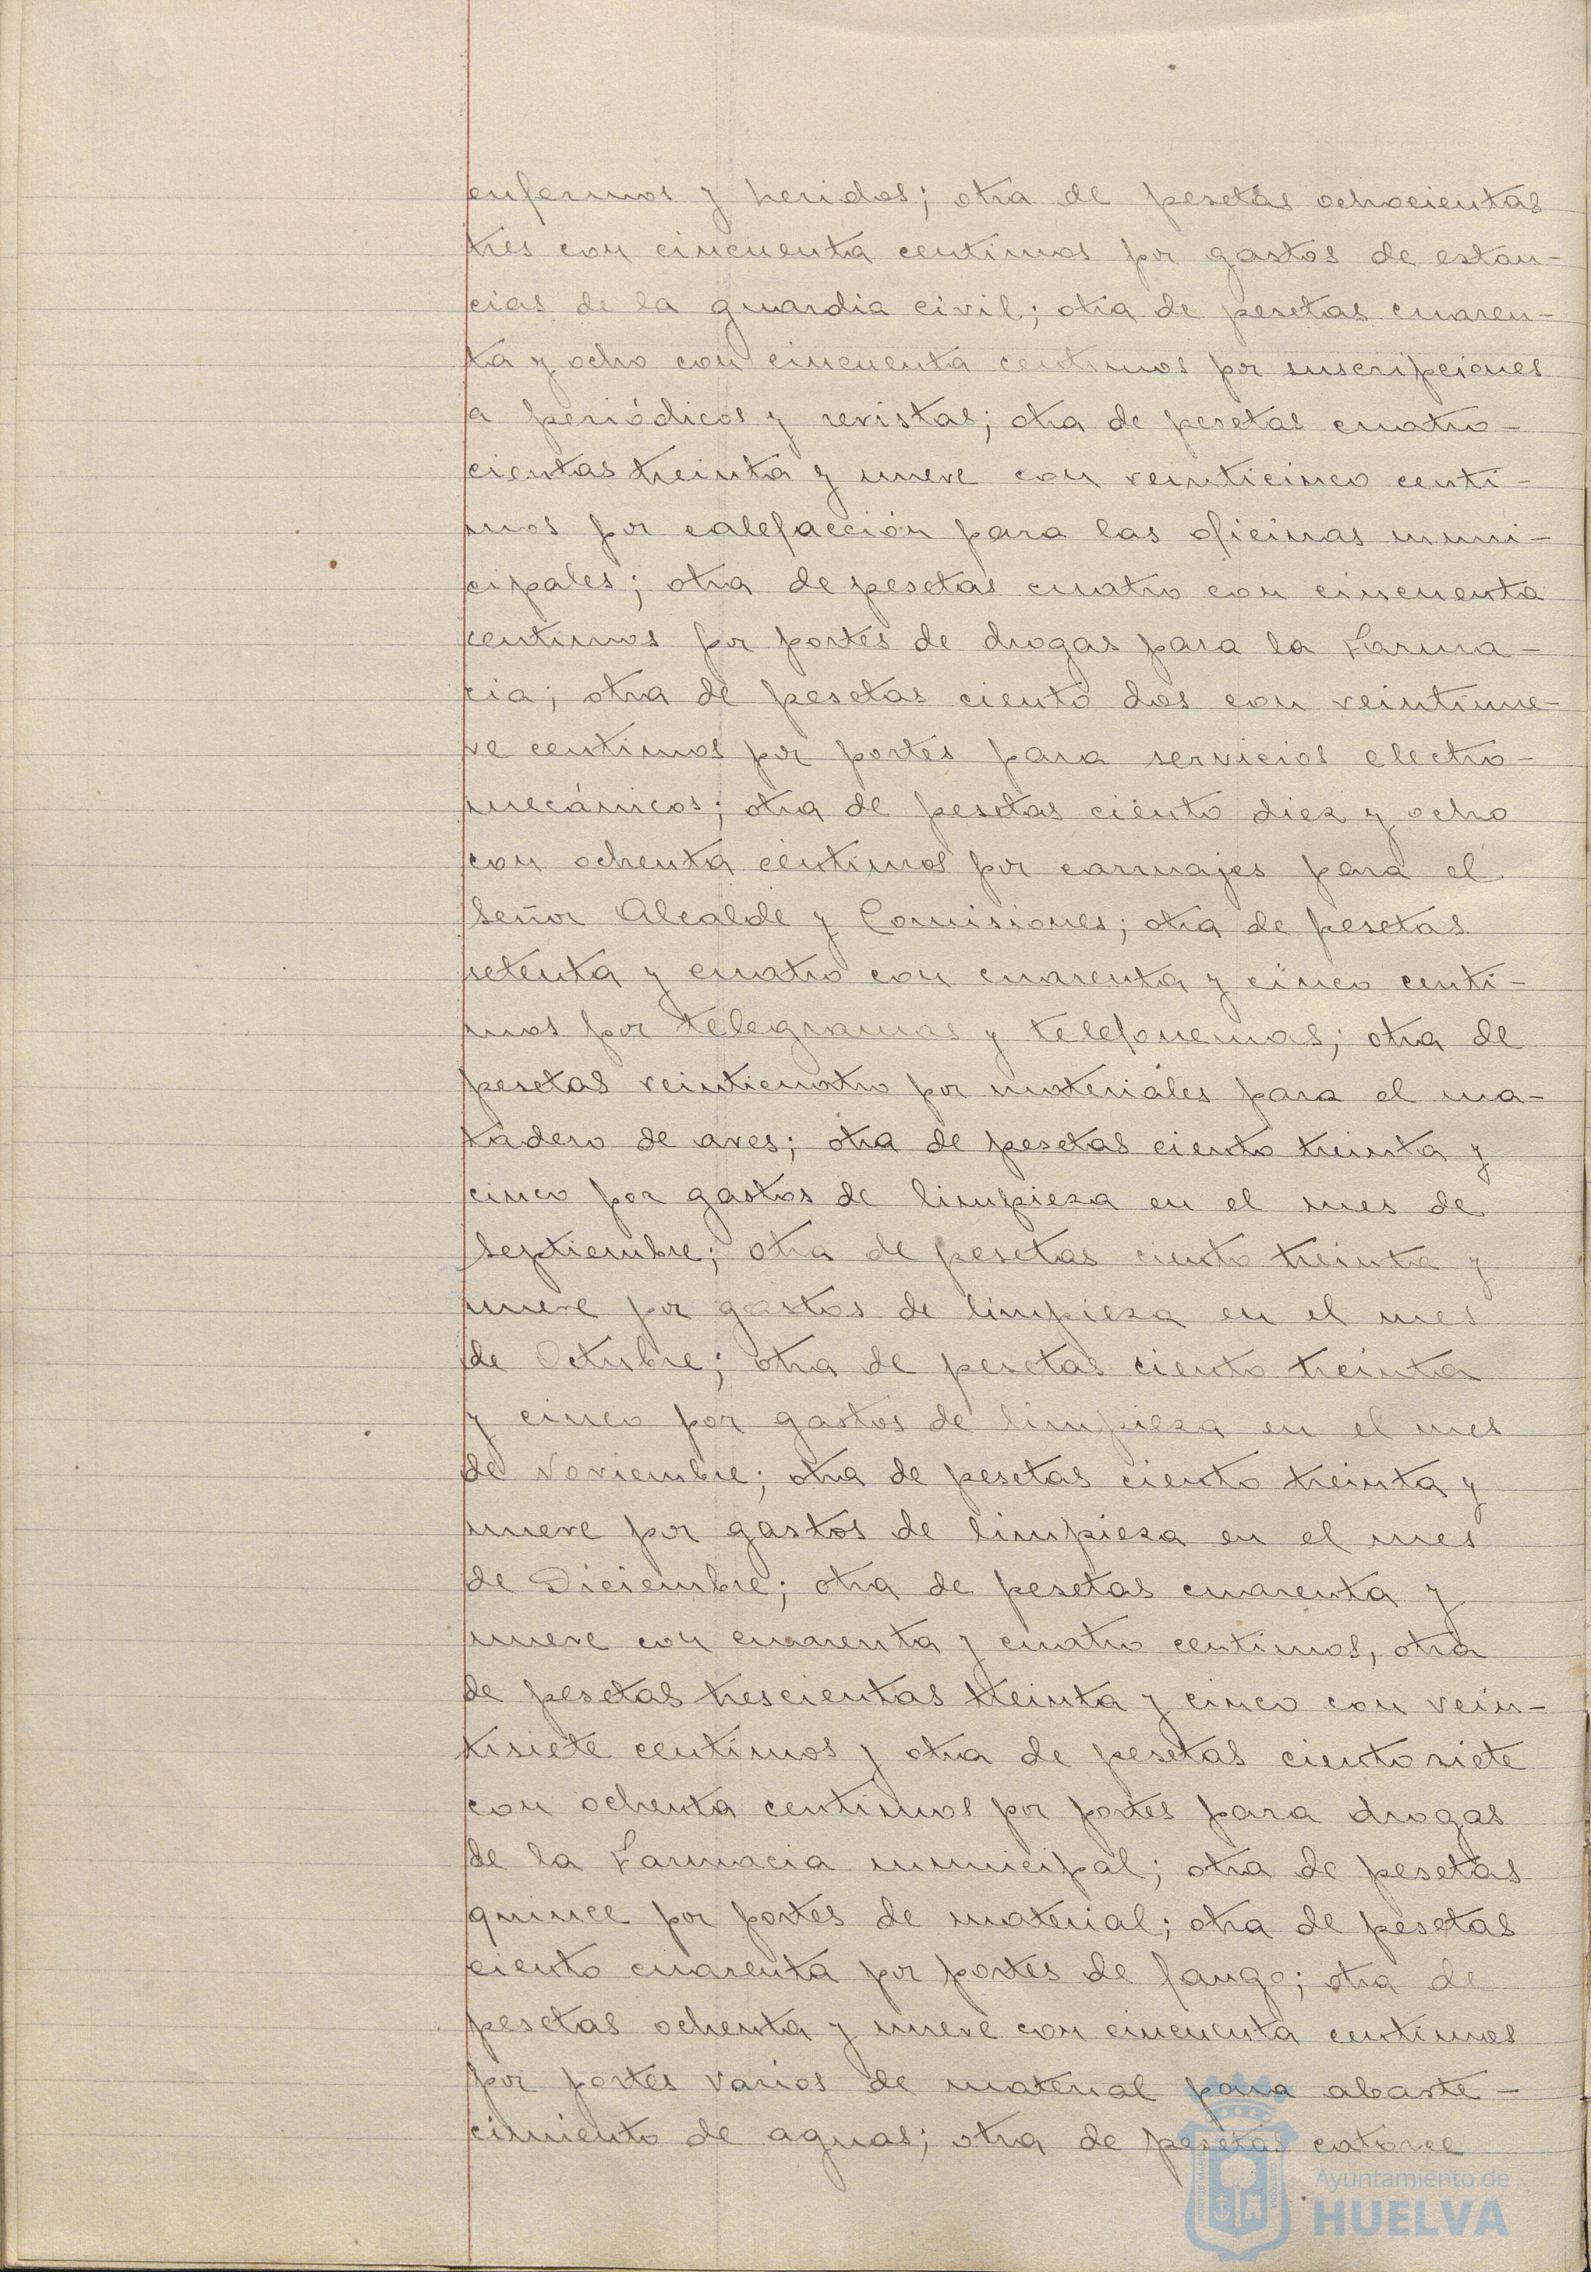 enfermos y heridos; otra de pesetas ochocientas
tres con cincuenta centimos por gastos de estan-
cias de la guardia civil; otra de pesetas cuaren-
ta y ocho con cincuenta centimos por suscripciones
a periódicos y revistas; otra de pesetas cuatro-
cientas treinta y nueve con veinticinco centi-
mos por calefacción para las oficinas muni-
cipales; otra de pesetas cuatro con cincuenta
centimos por portes de drogas para la Farma-
cia; otra de pesetas ciento dos con veintinue-
ve centimos por portes para servicios electro-
mecánicos; otra de pesetas ciento diez y ocho
con ochenta centimos por carruajes para el
Señor Alcalde y Comisiones; otra de pesetas
setenta y cuatro con cuarenta y cinco centi-
mos por telegramas y telefonemas; otra de
pesetas veinticuatro por materiales para el ma-
tadero de aves; otra de pesetas ciento treinta y
cinco por gastos de limpieza en el mes de
Septiembre; otra de pesetas ciento treinta y
nueve por gastos de limpieza en el mes
de Octubre; otra de pesetas ciento treinta
y cinco por gastos de limpieza en el mes
de Noviembre; otra de pesetas ciento treinta y
nueve por gastos de limpieza en el mes
de Diciembre; otra de pesetas cuarenta y
nueve con cuarenta y cuatro centimos, otra
de pesetas trescientas treinta y cinco con vein-
tisiete centimos y otra de pesetas ciento siete
con ochenta centimos por portes para drogas
de la Farmacia municipal; otra de pesetas
quince por portes de material; otra de pesetas
ciento cuarenta por portes de fango; otra de
pesetas ochenta y nueve con cincuenta centimos
por portes varios de material para abaste-
cimiento de aguas; otra de pesetas catorce
Ayuntamiento de
HUELVA